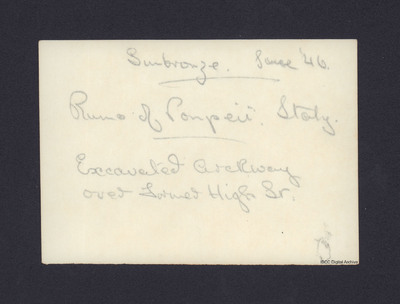 Sunbronze. June '46.
Ruins of Pompeii. Italy.
Excavated archway
over Former High St.
IBCC Digital Archive